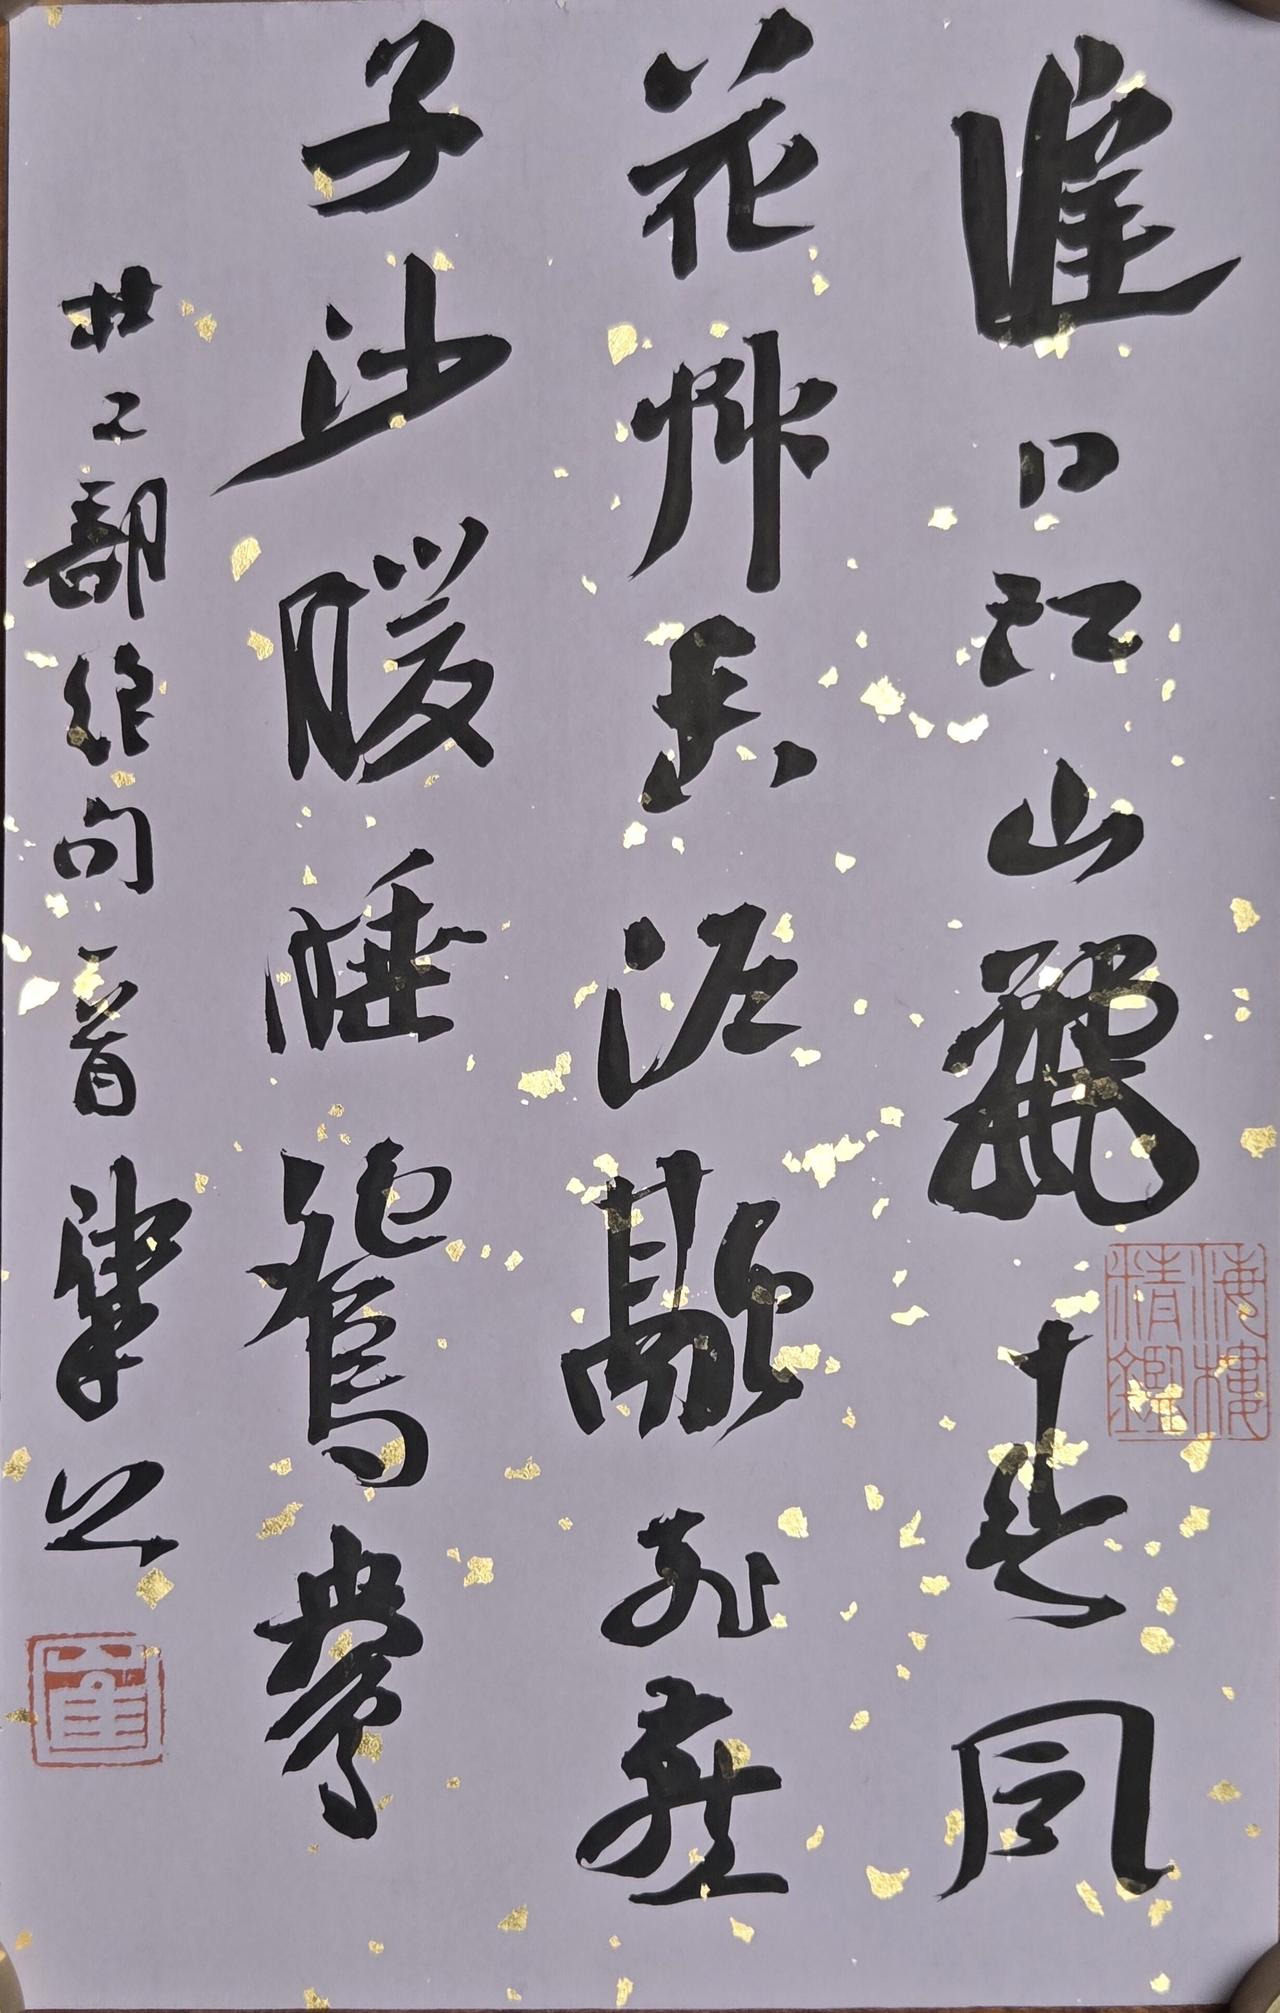 遲日江山麗春風
花艸香泥融飛燕
子沙暖睡鴛鴦
杜工部絕句一首
海樓精鑑